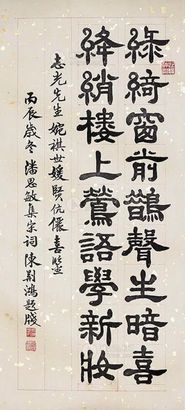 綠綺窗前鵲聲生暗喜
絳綃樓上鶯語學新妝
志光先生婉祺世媛賢伉儷喜鑒
丙辰歲冬潘思敏集宋詞陳荊鴻題牋